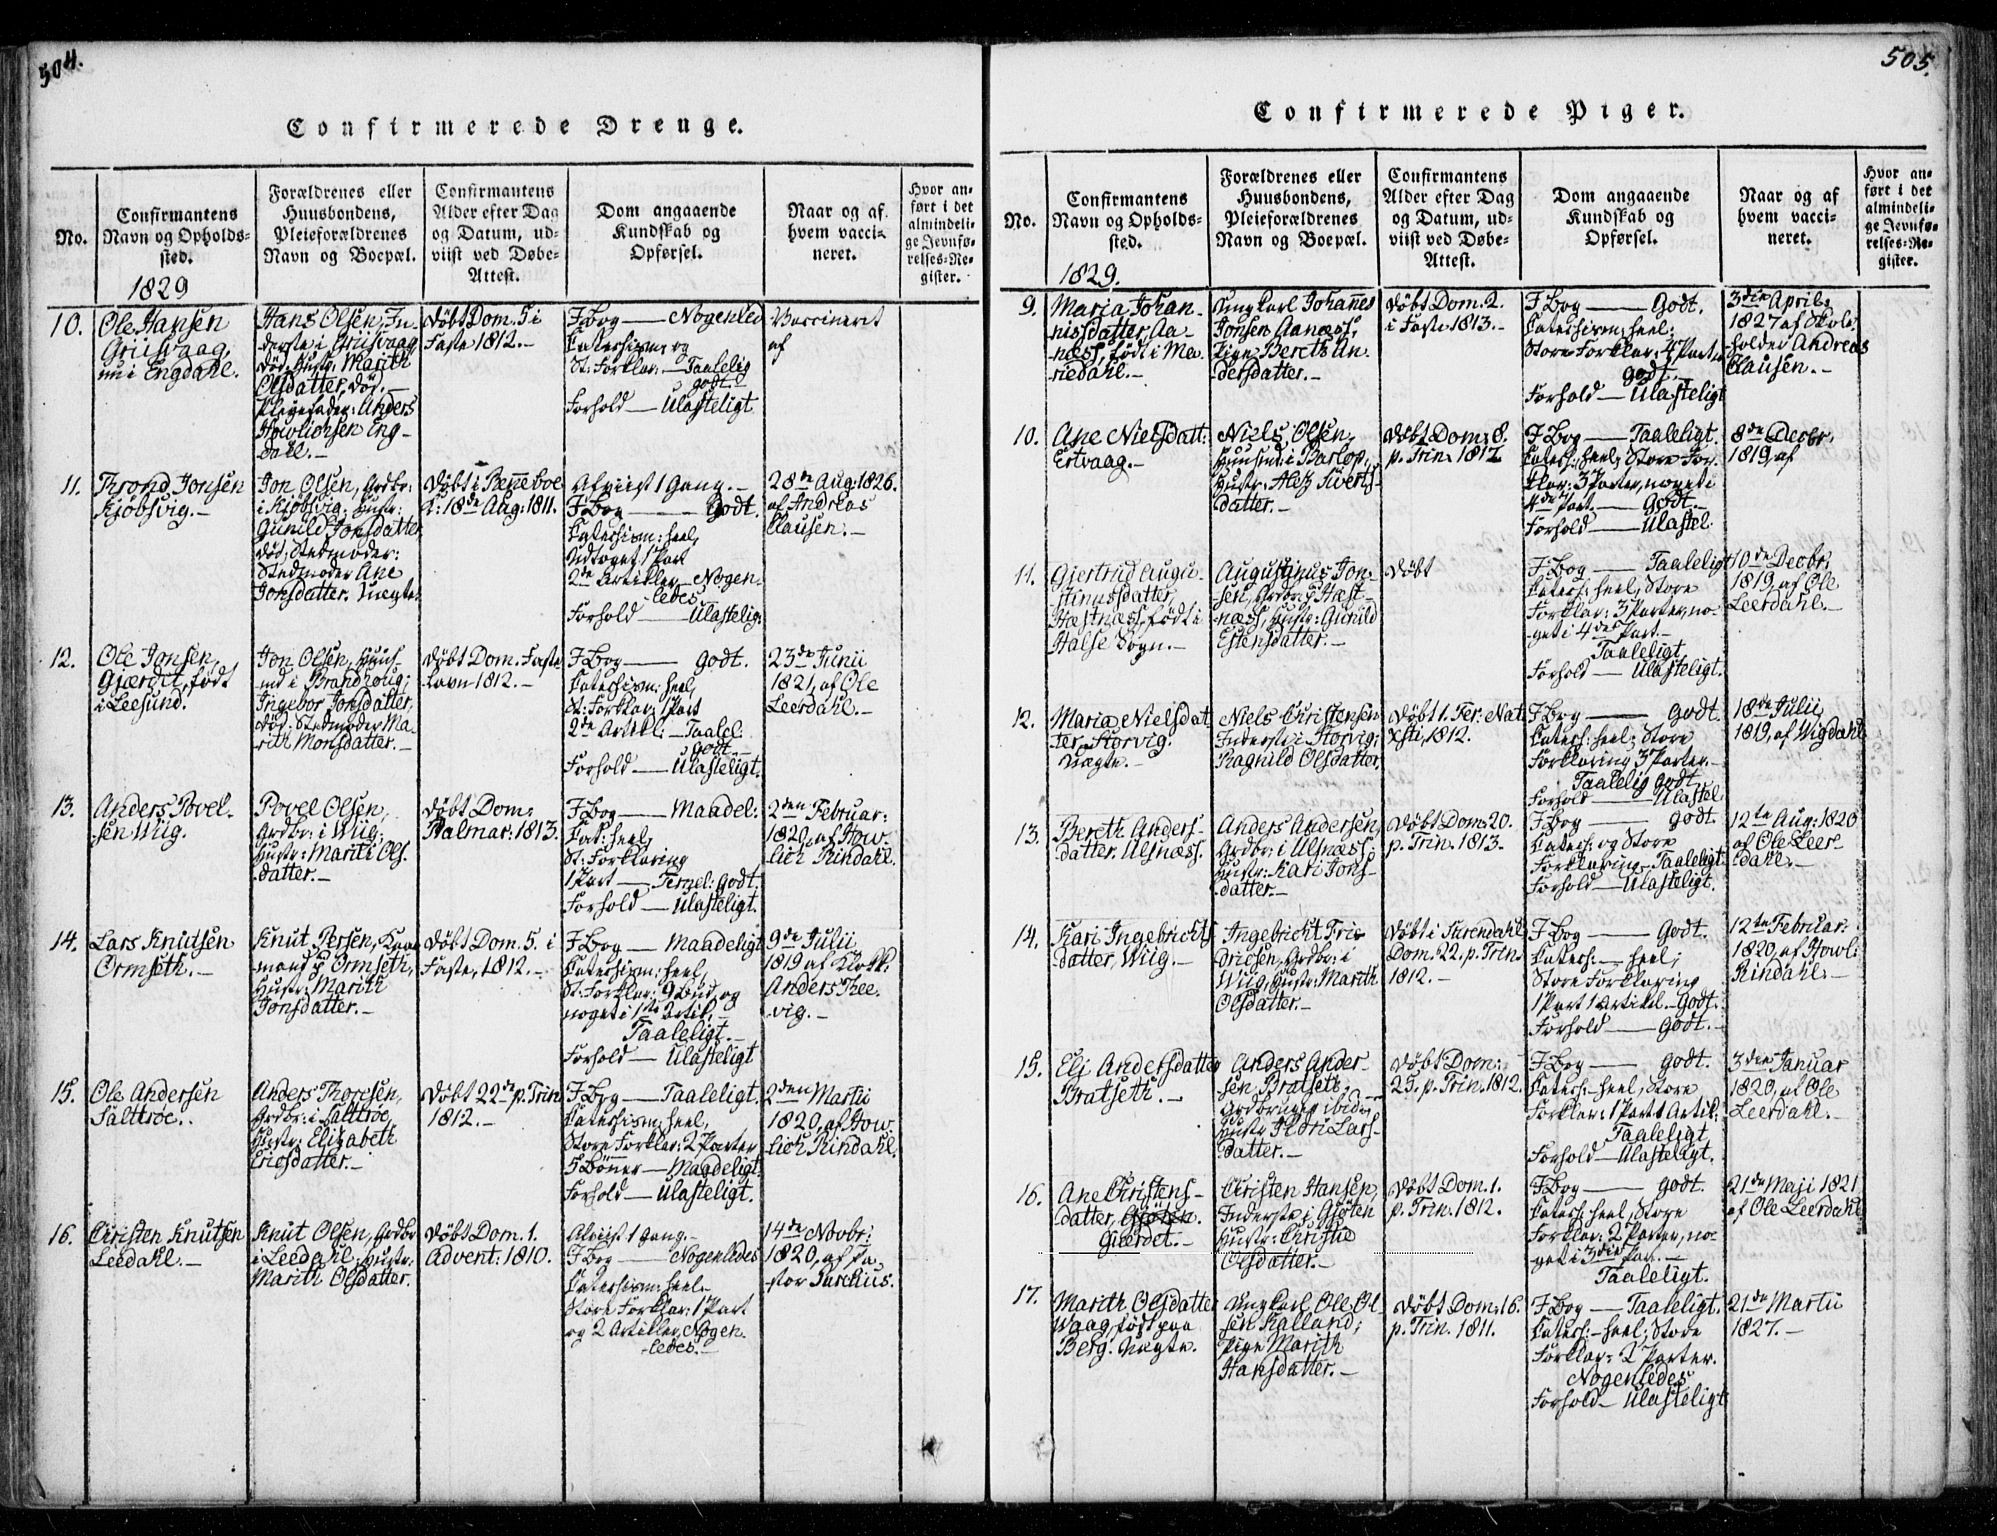 504.
Confirmerede Drenge.
No.
Confirmantens
Navn og Opholds-
sted.
1829
Forældrenes eller
Huusbondens,
Pleieforældrenes
Navn og Boepæl.
Confirmantens
Alder efter Dag
og Datum, ud-
viist ved Døbe-
Attest.
Dom angaaende
Kundskab og
Opførsel.
Naar og af
hvem vacci-
neret.
Hvor an-
ført i det
almindeli-
ge Jevnfø-
relses-Re-
gister.
10.
Ole Hansen
Griisvaag,
nu i Engdahl.
Hans Olsen, In-
derste i Griisvaag
død. Hustr: Marith
Olsdatter, død.
Pleyefader: Anders
Engdahl.
Døbt Dom. 5 i
Faste 1812.
F. Bog — Nogenled
Catechism: og
St: Forklar: — Taalelig
godt.
Forhold — Ulasteligt
Vaccineret
af
11.
Trond Jonsen
Kjøbsvig.
Jon Olsen, Grdbr:
i Kjøbsvig, Hustr:
Gunild Jonsdatter
død; Stedmoder:
Stedmoder Ane
Jonsdatter. Uægte.
Døbt i Renneboe
K: 18de Aug: 1811.
Afviist 1 Gang.
F. Bog — Godt.
Catechism: heel,
Udtoget 1 Part
2de Artikler — Nogen-
ledes
Forhold — Ulastelig:
28de Aug: 1826.
af Andreas
Clausen.
12.
Ole Jonsen,
Gjærdet, født
i Leesund.
Jon Olsen, Huus-
md i Brandhoug;
Ingebor Jonsdatter,
død: Stedmoder Ma-
rith Monsdatter.
Døbt Dom. Faste
Lavn 1812.
F. Bog — Godt.
Catechism: heel,
St: Forklar: 1 Part
2de Artikl: — Taalel:
godt.
Forhold — Ulasteligt.
23de Junii
1821, af Ole
Leerdahl.
13.
Anders Povel-
sen Wiig.
Povel Olsen,
Grdbr: i Wiig;
Hustr: Mariti Ols-
datter.
Døbt Dom:
Palmar: 1813.
F. Bog — Maadel:
Cat: heel,
St: Forklaring
1 Part — Temel: godt.
Forhold — Ulasteligt.
2den Februar:
1820, af How-
lich Rindahl.
14.
Lars Knutsen
Ormseth.
Knut Persen,
mand p Ormseth,
Hustr: Marith
Jonsdatter.
Døbt Dom. 5. i
Faste, 1812.
F. Bog — Maadeligt
Catechism: heel,
St: Forklar: 9 Bud, og
noget i 1ste Artik,
Taaleligt.
Forhold — Ulasteligt
9de Julii
1819 af Klokk:
Anders Ree-
vig.
15.
Ole Andersen
Sälttrøe.
Anders Thoresen,
Grdbr: i Salttrøe,
Hustr: Elizabeth
Ericsdatter.
Døbt 22de p. Trin
1812.
F. Bog — Taaleligt.
Catechism: heel,
Store Forklar: 2 Parter
5 Bønner — Maadeligt
Forhold — Ulasteligt.
2den Martii
1820, af How-
lich Rindahl.
16.
Christen Knutsen
Leedahl.
Knut Olsen, Grdbr
i Leedahl; Hustr:
Marith Olsdatter.
Døbt Dom. 1.
Advent: 1810.
Afviist 1 Gang.
F. Bog — Nogenledes
Catechism: heel.
Store Forklar: 1 Part
og 2 Artikler, Nogen-
ledes.
14de Novbr:
1820, af Pa-
stor Purelius.
505.
Confirmerede Piger.
No.
Confirmantens
Navn og Opholds-
sted.
1829.
Forældrenes eller
Huusbondens,
Pleieforældrenes
Navn og Boepæl.
Confirmantens
Alder efter Dag
og Datum, ud-
viist ved Døbe-
Attest.
Dom angaaende
Kundskab og
Opførsel.
Naar og af
hvem vacci-
neret.
Hvor an-
ført i det
almindeli-
ge Jevnfø-
relses-Re-
gister.
9.
Maria Johan-
nissdatter, Aa-
næss, født i Ma-
riedahl.
Ungkarl Johannes
Jonsen Aanæss,
Pige Bereth An-
dersdatter.
Døbt Dom. 2.
i Faste 1813.
F. Bog — Godt.
Catechism: heel:
Store Forklar: 4 Parter
godt.
Forhold — Ulasteligt
3die April:
1827 af Skole-
holder Andreas
Clausen.
10.
Ane Nielsdatt:
Ertvaag.
Niels Olsen,
Huusmd: i Barlop,
Hustr: Alez Siverts-
datter.
Døbt Dom: 8.
p. Trin. 1812
F. Bog — Taaleligt.
Catech: heel; Store For-
klar: 3 Parter, noget i
4de Part. — Godt.
Forhold — Ulastel.
8de Decbr,
1819, af
11.
Gjertrud Augu-
stinusdatter,
Hæstnæss, født i
Halse Sogn.
Augustinus Jon-
sen, Grdbr: p Hæst-
næss, Hustr: Gunild
Estensdatter.
Døbt
F. Bog — Taaleligt
Catech: heel, Store
Forklar: 3 Parter, no-
get i 4de Part.
Taaleligt
Forhold — Ulasteligt.
10de Decbr,
1819, af Ole
Leerdahl.
12.
Maria Nielsdat
ter Storvig.
Uægte.
Niels Christensen
Inderste i Storvig;
Ragnild Olsdatter.
Døbt 1. Fer. Nat.
Xsti, 1812.
F. Bog — Godt.
Catech: heel; Store
Forklaring 3 Parter.
Taalelig godt
Forhold — Ulastel
18de Julii
1819, af Wigdahl
13.
Bereth Anders-
datter. Ulsnæss.
Anders Andersen,
Grdbr: i Ulsnæss;
Hustr: Kari Jons-
datter.
Døbt Dom: 20.
p. Trin. 1813.
F. Bog — godt.
Catech: og Store
Forklaring — Taaleligt
Forhold — Ulasteligt.
12te Aug: 1820
af Ole Leer-
dahl.
14.
Kari Ingebrichts
datter, Wiig.
Ingebricht Fri-
dricsen, Grdbr: i
Wiig, Hustr: Marith
Olsdatter.
Døbt i Surendahl
Dom. 22. p. Trin.
1812.
F. Bog — Godt.
Catech: — heel;
Store Forklaring
1 Part 1 Artikel — Godt.
Forhold — Godt.
12te Februar.
1820, af Howl:
Rindahl.
15.
Eli Andersdatter
Bratseth.
Anders Ander-
sen Bratseth,
Gaardbruger ibid:,
Hustr Ildri Lars-
datter.
Døbt Dom:
25. p. Trin. 1812.
F. Bog — Godt.
Catech: — heel, Store
Forklar: 1 Part 1 Artik:
Taaleligt
Forhold — Ulasteligt.
3die Januar
1820, af Ole
Leerdahl.
16.
Ane Christens-
datter, Gjøten.
Gjerdet.
Christen Hansen,
Inderste i Gjøten
Hustr: Christie
Olsdatter.
Døbt Dom. 1.
p. Trin. 1812.
F. Bog — Godt.
Catech: heel, Store
Forklar: 2 Parter, no-
get i 3die Par.
Taaleligt.
21de Maji 1821
af Ole Leerdahl
17.
Marith Olsdatter
Waag, født paa
Berg. Uægte.
Ungkarl Ole Ol-
sen Kalland;
Pige Marith
Hansdatter.
Døbt Dom: 16.
p. Trin. 1811.
F. Bog — Taaleligt.
Catech: — heel; Store
Forklar: 2 Parter.
Nogenledes
Forhold — Ulasteligt
21de Martii
1827.